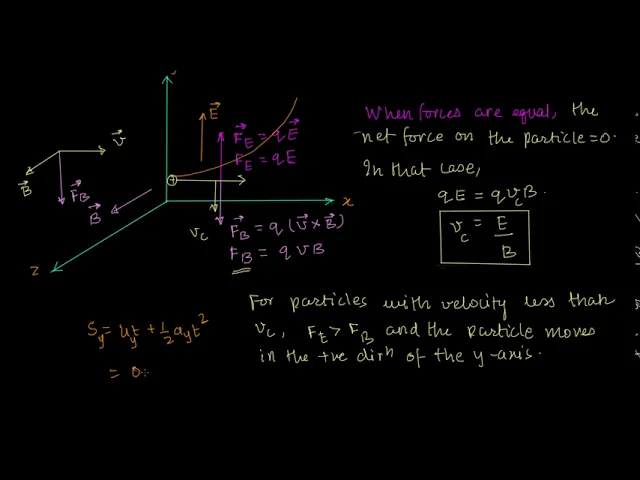 E
F_E = qE
F_E = qE
v
B
F_B
B
x
z
v_c
F_B = q (v × B)
F_B = q v B
When forces are equal, the
net force on the particle = 0.
In that case,
qE = q v_c B.
v_c = E / B
For particles with velocity less than
v_c, F_E > F_B and the particle moves
in the +ve dirⁿ of the y-axis.
S_y = u_y t + 1/2 a_y t²
= 0